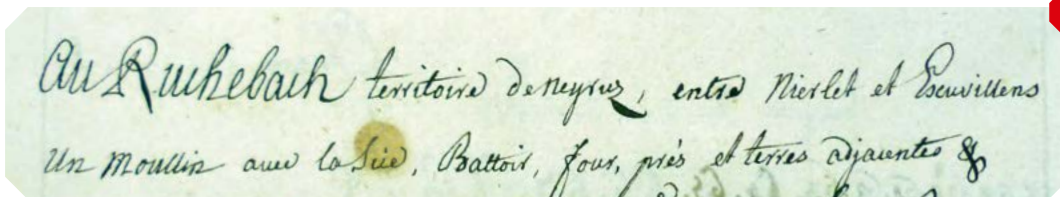 Au Ruchebach territoire de neyruz, entre Nierlet et Ecuvillens
Un Moullin avec la Sie, Battoir, four, prés et terres adjacentes &